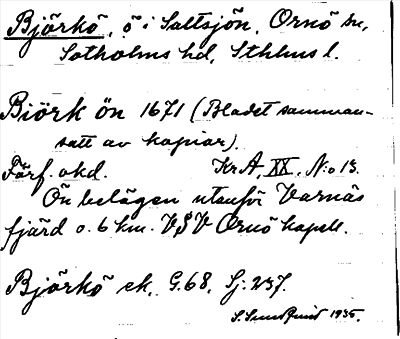 Björkö, ö i Saltsjön, Ornö sn,
Sotholms hd, Sthlms l.
Biörk ön 1671 (Bladet samman-
satt av kopior).
Förf. okd. KrA, XX, N:o 13.
Ön belägen utanför Varnäs
fjärd o. 6 km. VSV Ornö kapell.
Björkö ek. G.68, Sj: 237.
S. Sundquist 1935.